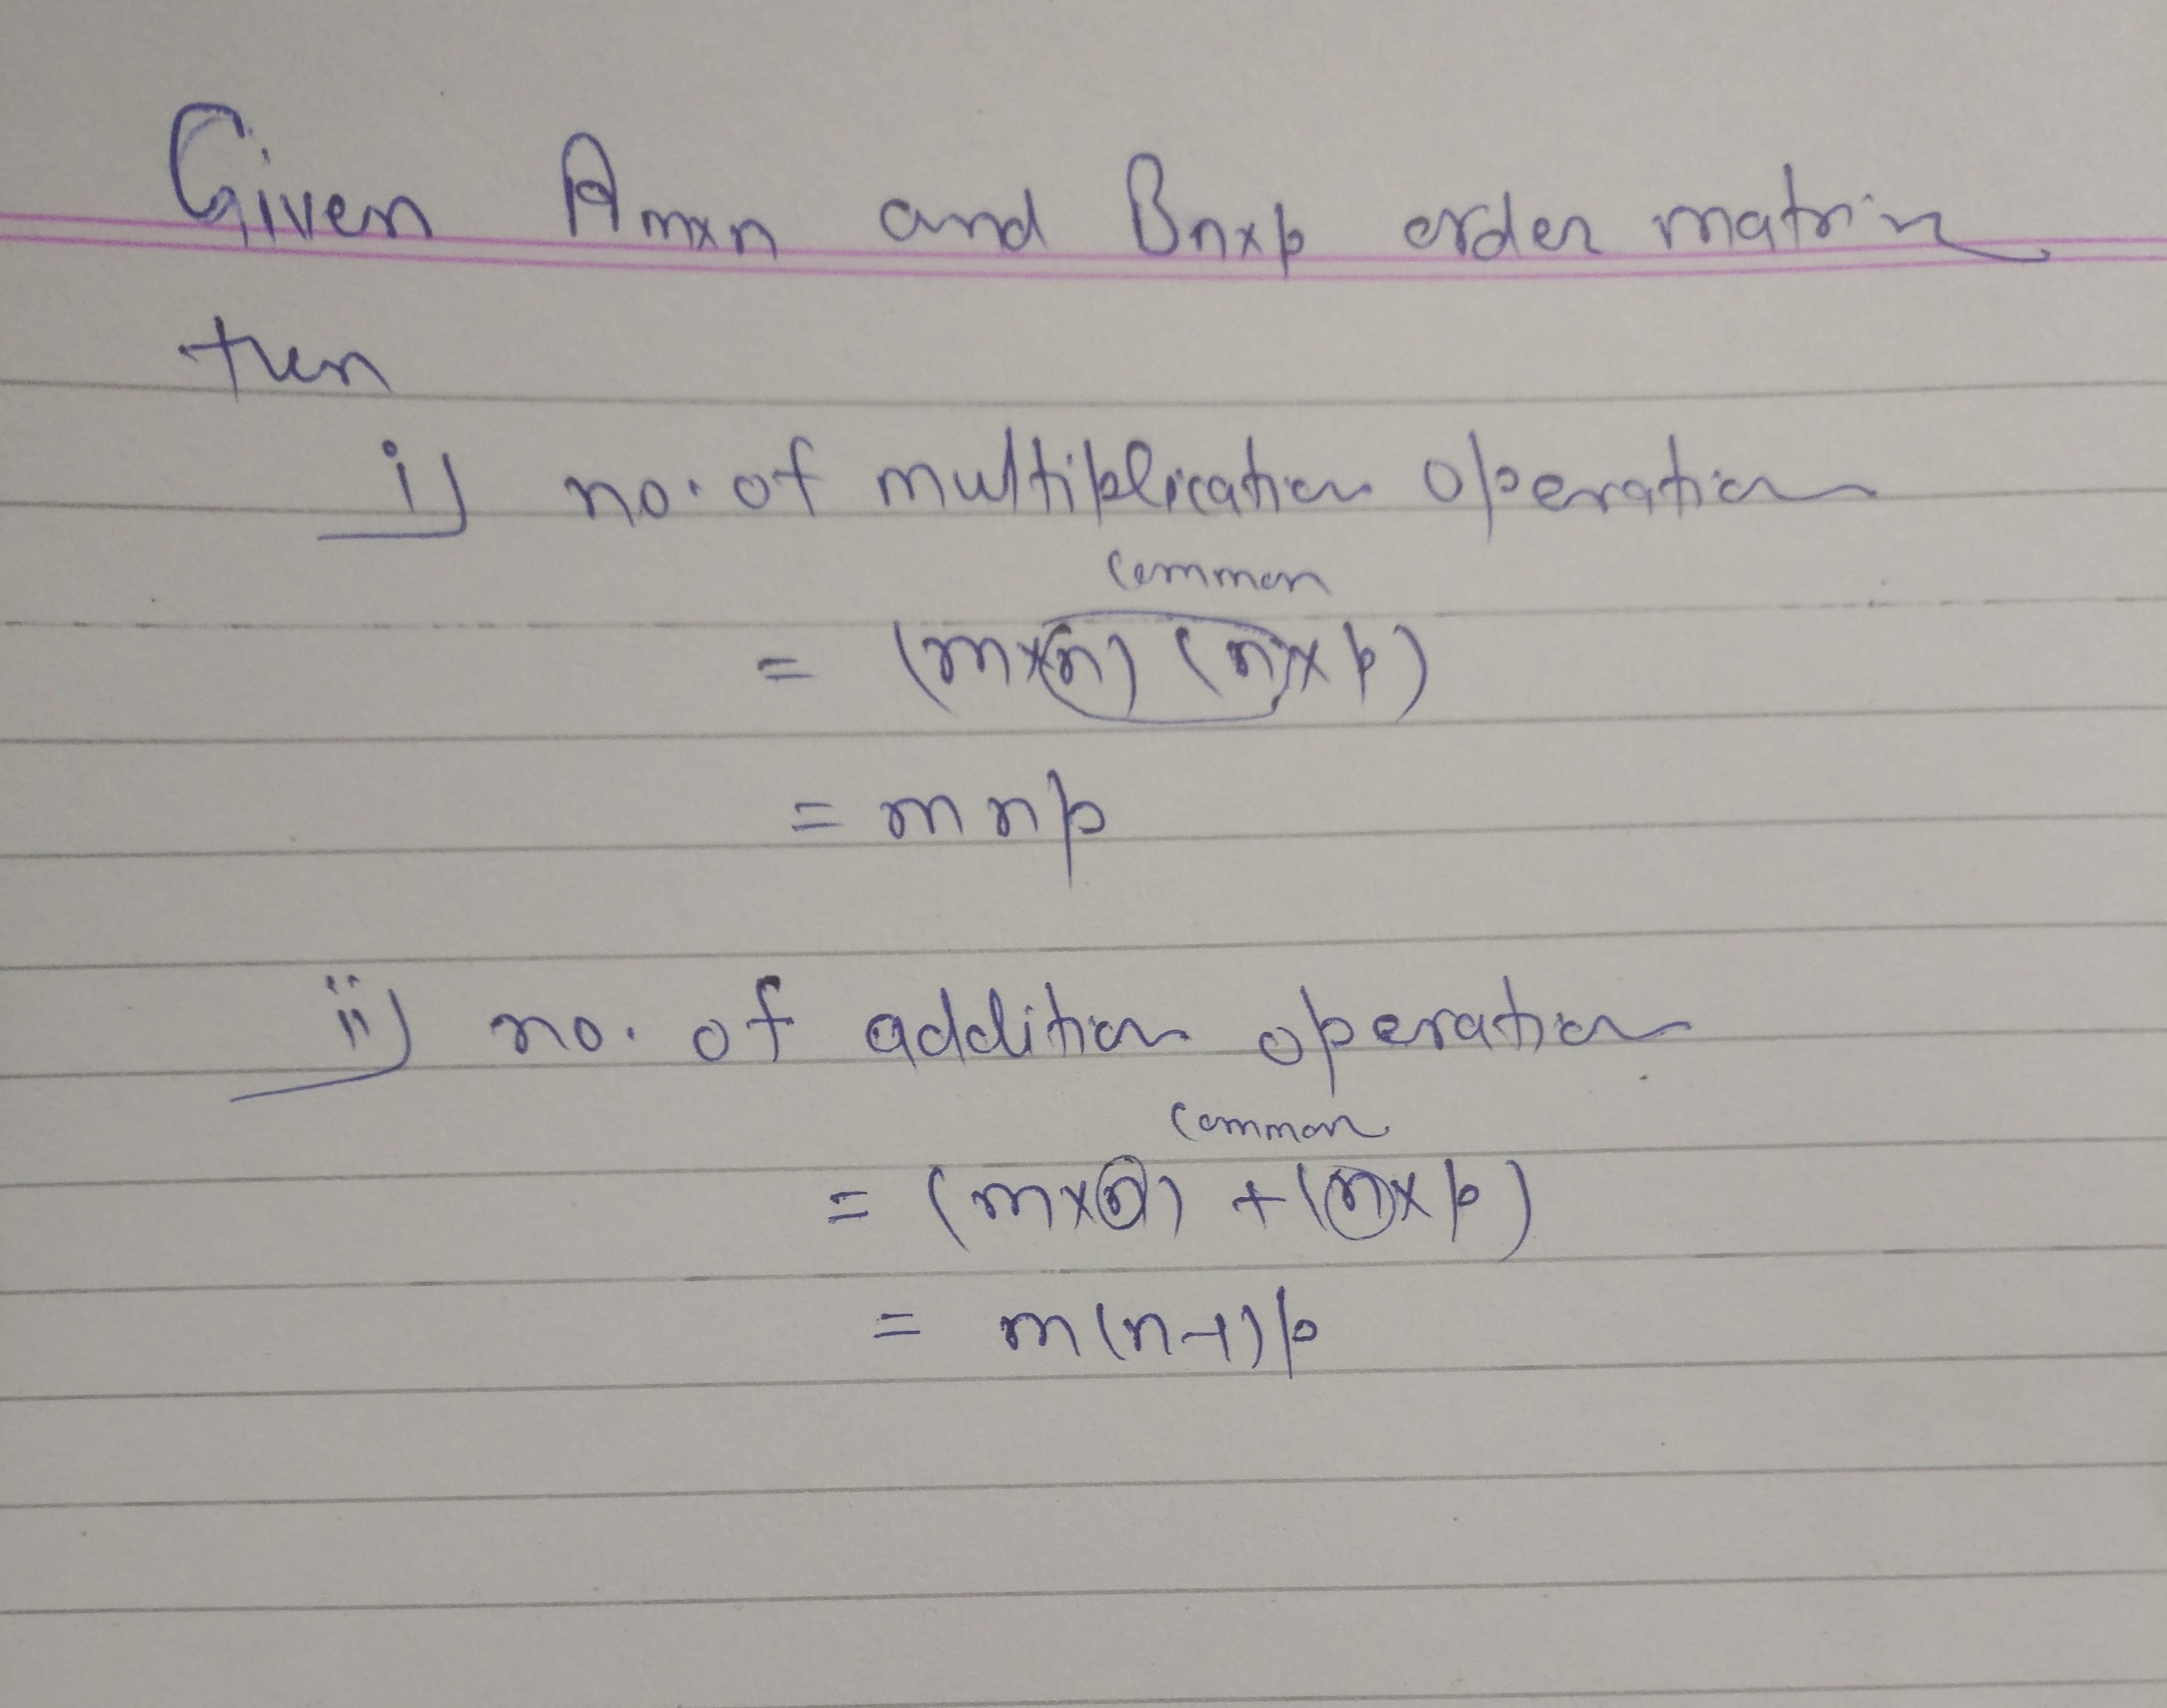 Given Amxn and Bnxp order matrix
then
i) no. of multiplication operation
common
= (m×n) (n×p)
= mnp
ii) no. of addition operation
common
= (m×n) + (n×p)
= m(n-1)p